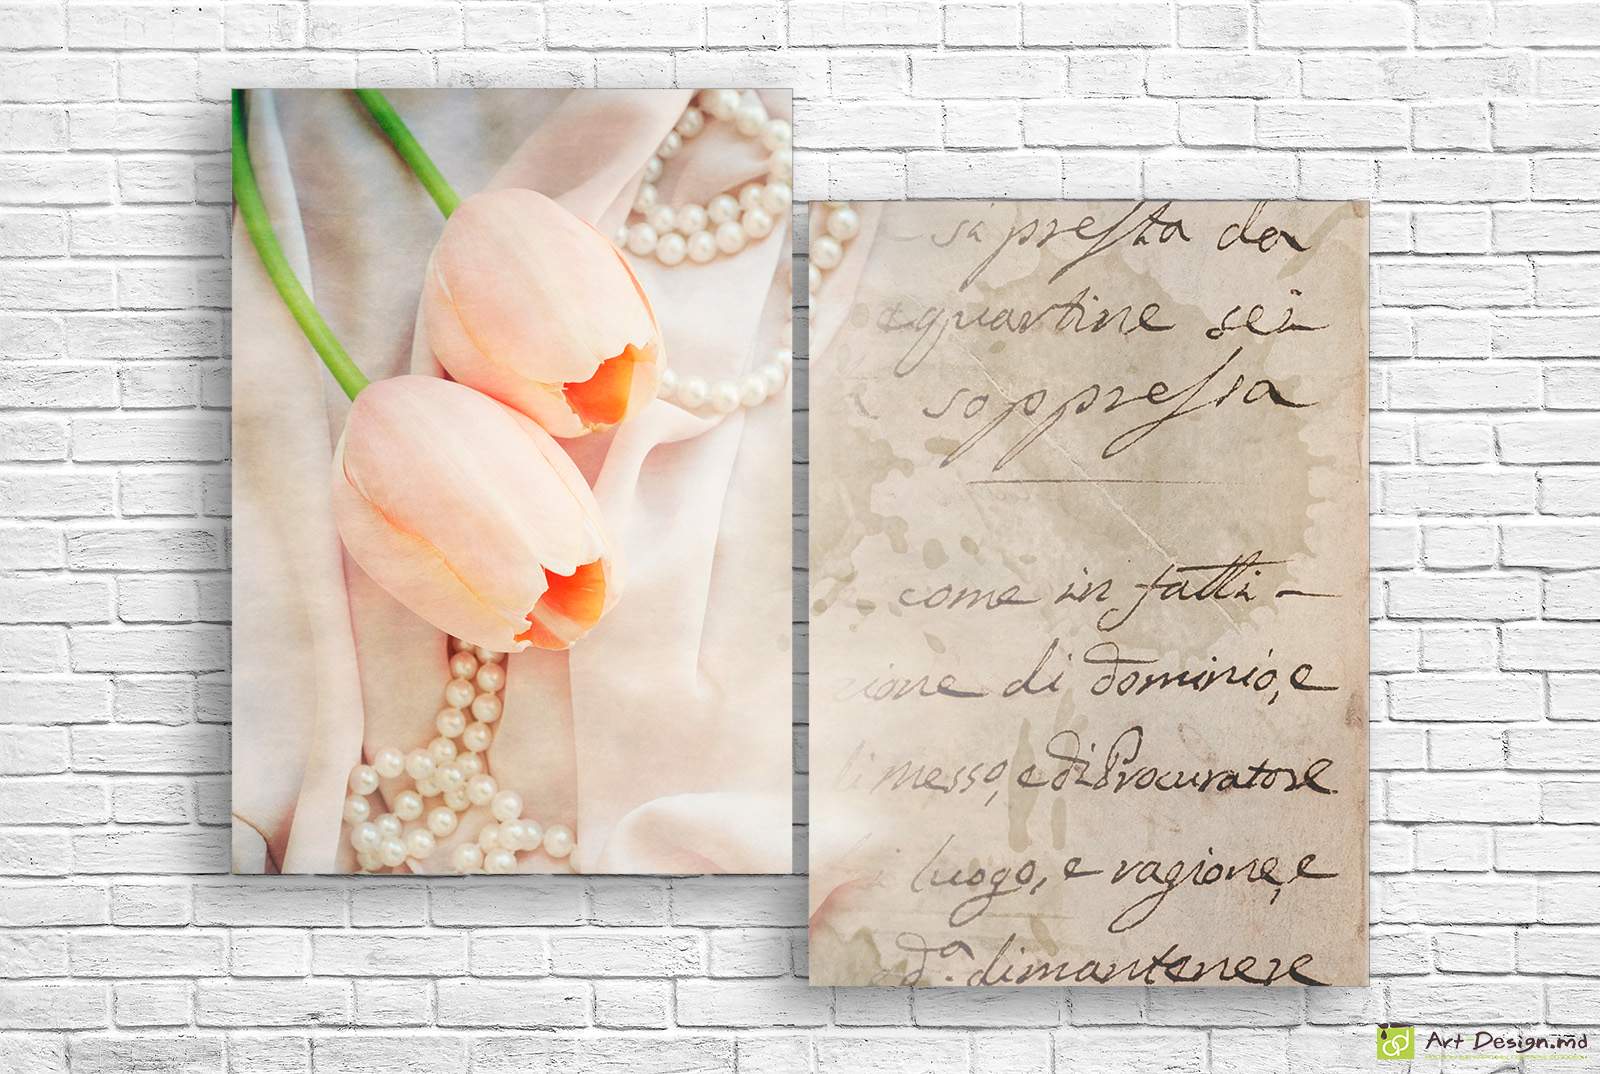 si presta da
e quartine sei
soppressa
come in fatti -
zione di dominio, e
di messo, e di Procuratore
di luogo, e ragione, e
ed.a di mantenere
Art Design.md